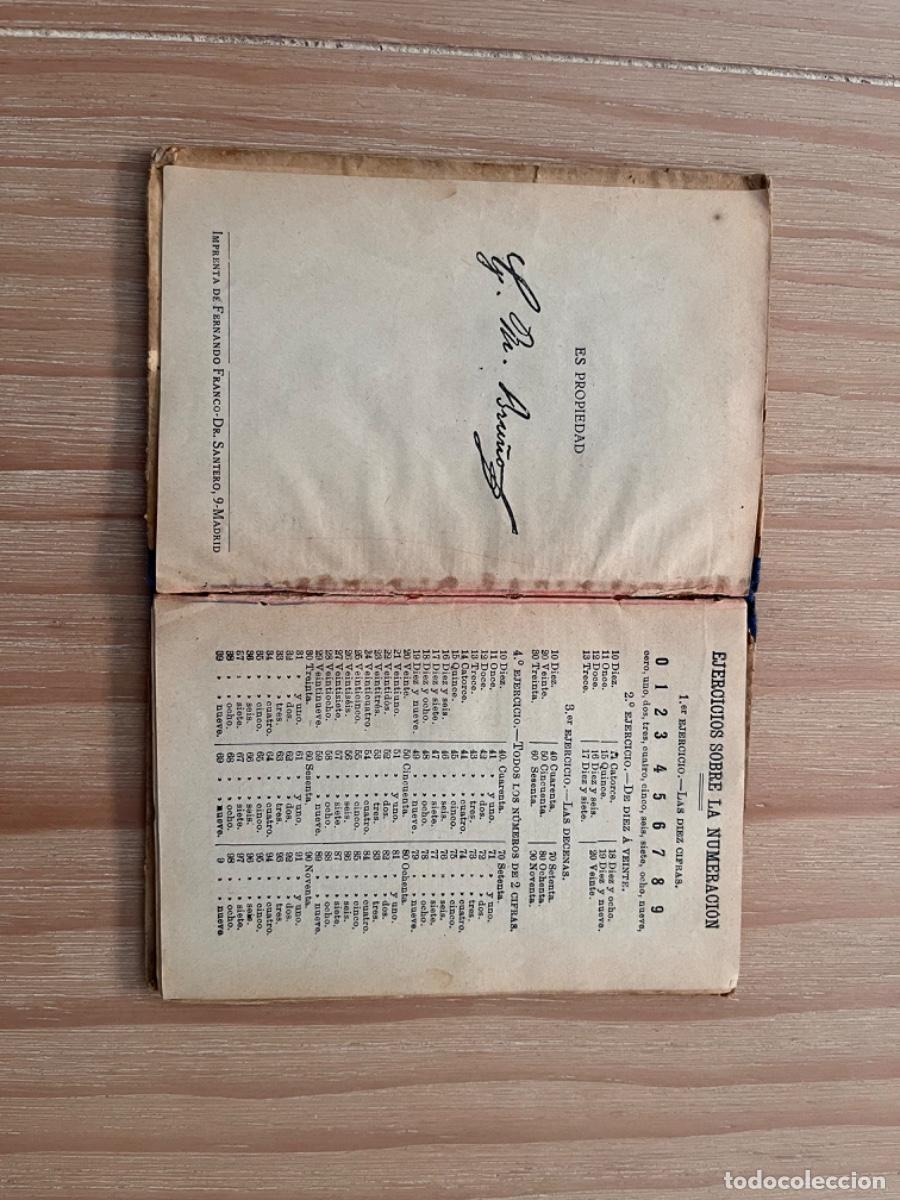 ES PROPIEDAD
G. M. Bruño
IMPRENTA DE FERNANDO FRANCO-DR. SANTERO, 9-MADRID
EJERCICIOS SOBRE LA NUMERACION
1.er EJERCICIO.—LAS DIEZ CIFRAS.
0 1 2 3 4 5 6 7 8 9
cero, uno, dos, tres, cuatro, cinco, seis, siete, ocho, nueve,
2.º EJERCICIO.—DE DIEZ Á VEINTE.
10 Diez. 14 Catorce. 18 Diez y ocho.
11 Once. 15 Quince. 19 Diez y nueve.
12 Doce. 16 Diez y seis. 20 Veinte.
13 Trece. 17 Diez y siete.
3.er EJERCICIO.—LAS DECENAS.
10 Diez. 40 Cuarenta. 70 Setenta.
20 Veinte. 50 Cincuenta. 80 Ochenta.
30 Treinta. 60 Sesenta. 90 Noventa.
4.º EJERCICIO.—TODOS LOS NÚMEROS DE 2 CIFRAS.
10 Diez. 40 Cuarenta. 70 Setenta.
11 Once. 41 » y uno. 71 » y uno.
12 Doce. 42 » » dos. 72 » » dos.
13 Trece. 43 » » tres. 73 » » tres.
14 Catorce. 44 » » cuatro. 74 » » cuatro.
15 Quince. 45 » » cinco. 75 » » cinco.
16 Diez y seis. 46 » » seis. 76 » » seis.
17 Diez y siete. 47 » » siete. 77 » » siete.
18 Diez y ocho. 48 » » ocho. 78 » » ocho.
19 Diez y nueve. 49 » » nueve. 79 » » nueve.
20 Veinte. 50 Cincuenta. 80 Ochenta.
21 Veintiuno. 51 » y uno. 81 » y uno.
22 Veintidós. 52 » » dos. 82 » » dos.
23 Veintitrés. 53 » » tres. 83 » » tres.
24 Veinticuatro. 54 » » cuatro. 84 » » cuatro.
25 Veinticinco. 55 » » cinco. 85 » » cinco.
26 Veintiséis. 56 » » seis. 86 » » seis.
27 Veintisiete. 57 » » siete. 87 » » siete.
28 Veintiocho. 58 » » ocho. 88 » » ocho.
29 Veintinueve. 59 » » nueve. 89 » » nueve.
30 Treinta. 60 Sesenta. 90 Noventa.
31 » y uno. 61 » y uno. 91 » y uno.
32 » » dos. 62 » » dos. 92 » » dos.
33 » » tres. 63 » » tres. 93 » » tres.
34 » » cuatro. 64 » » cuatro. 94 » » cuatro.
35 » » cinco. 65 » » cinco. 95 » » cinco.
36 » » seis. 66 » » seis. 96 » » seis.
37 » » siete. 67 » » siete. 97 » » siete.
38 » » ocho. 68 » » ocho. 98 » » ocho.
39 » » nueve. 69 » » nueve. 9 » » nueve.
todocoleccion